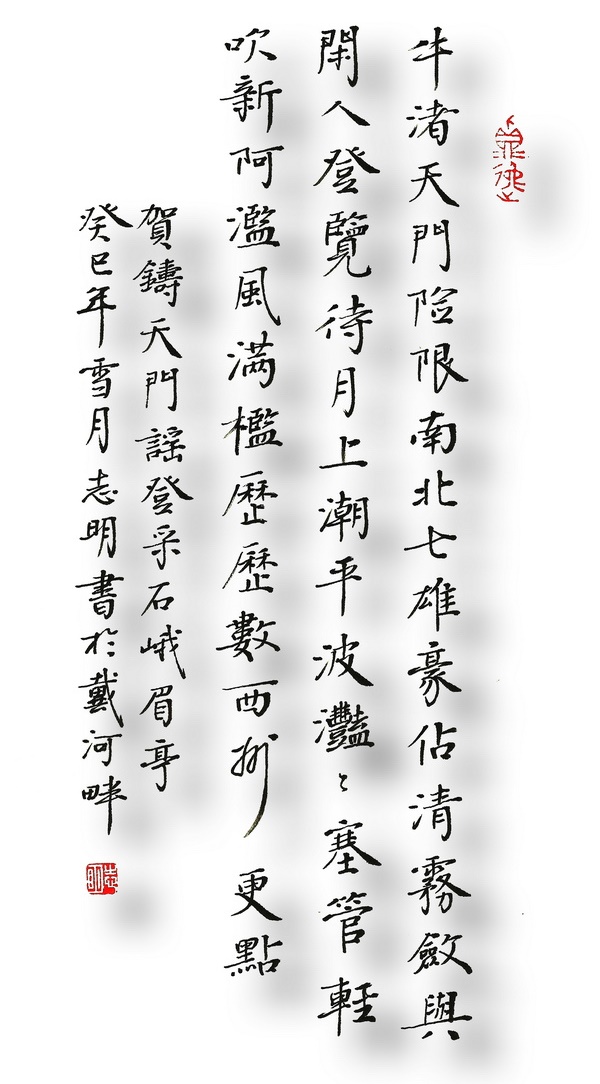 牛渚天門险限南北七雄豪佔清霧斂與
閑人登覽待月上潮平波灩〻塞管輕
吹新阿濫風满檻歷歷數西州更點
賀鑄天門謡登采石峨眉亭
癸巳年雪月志明書於戴河畔
志明